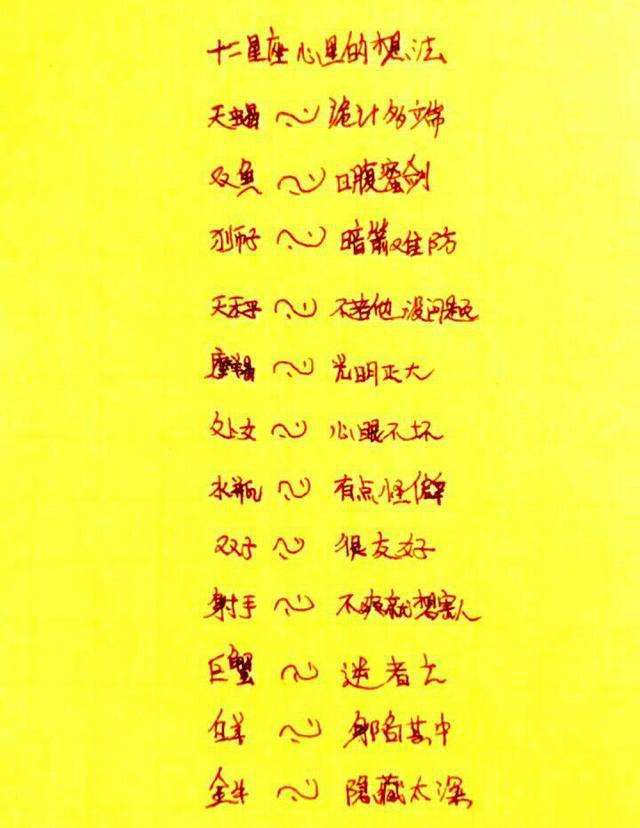 十二星座心里的想法
天蝎～诡计多端
双鱼～口腹蜜剑
狮子～暗箭难防
天秤～不若他没问题
摩羯～光明正大
处女～心眼不坏
水瓶～有点怪僻
双子～很友好
射手～不爽就想害人
巨蟹～逆者亡
白羊～身陷其中
金牛～隐藏太深